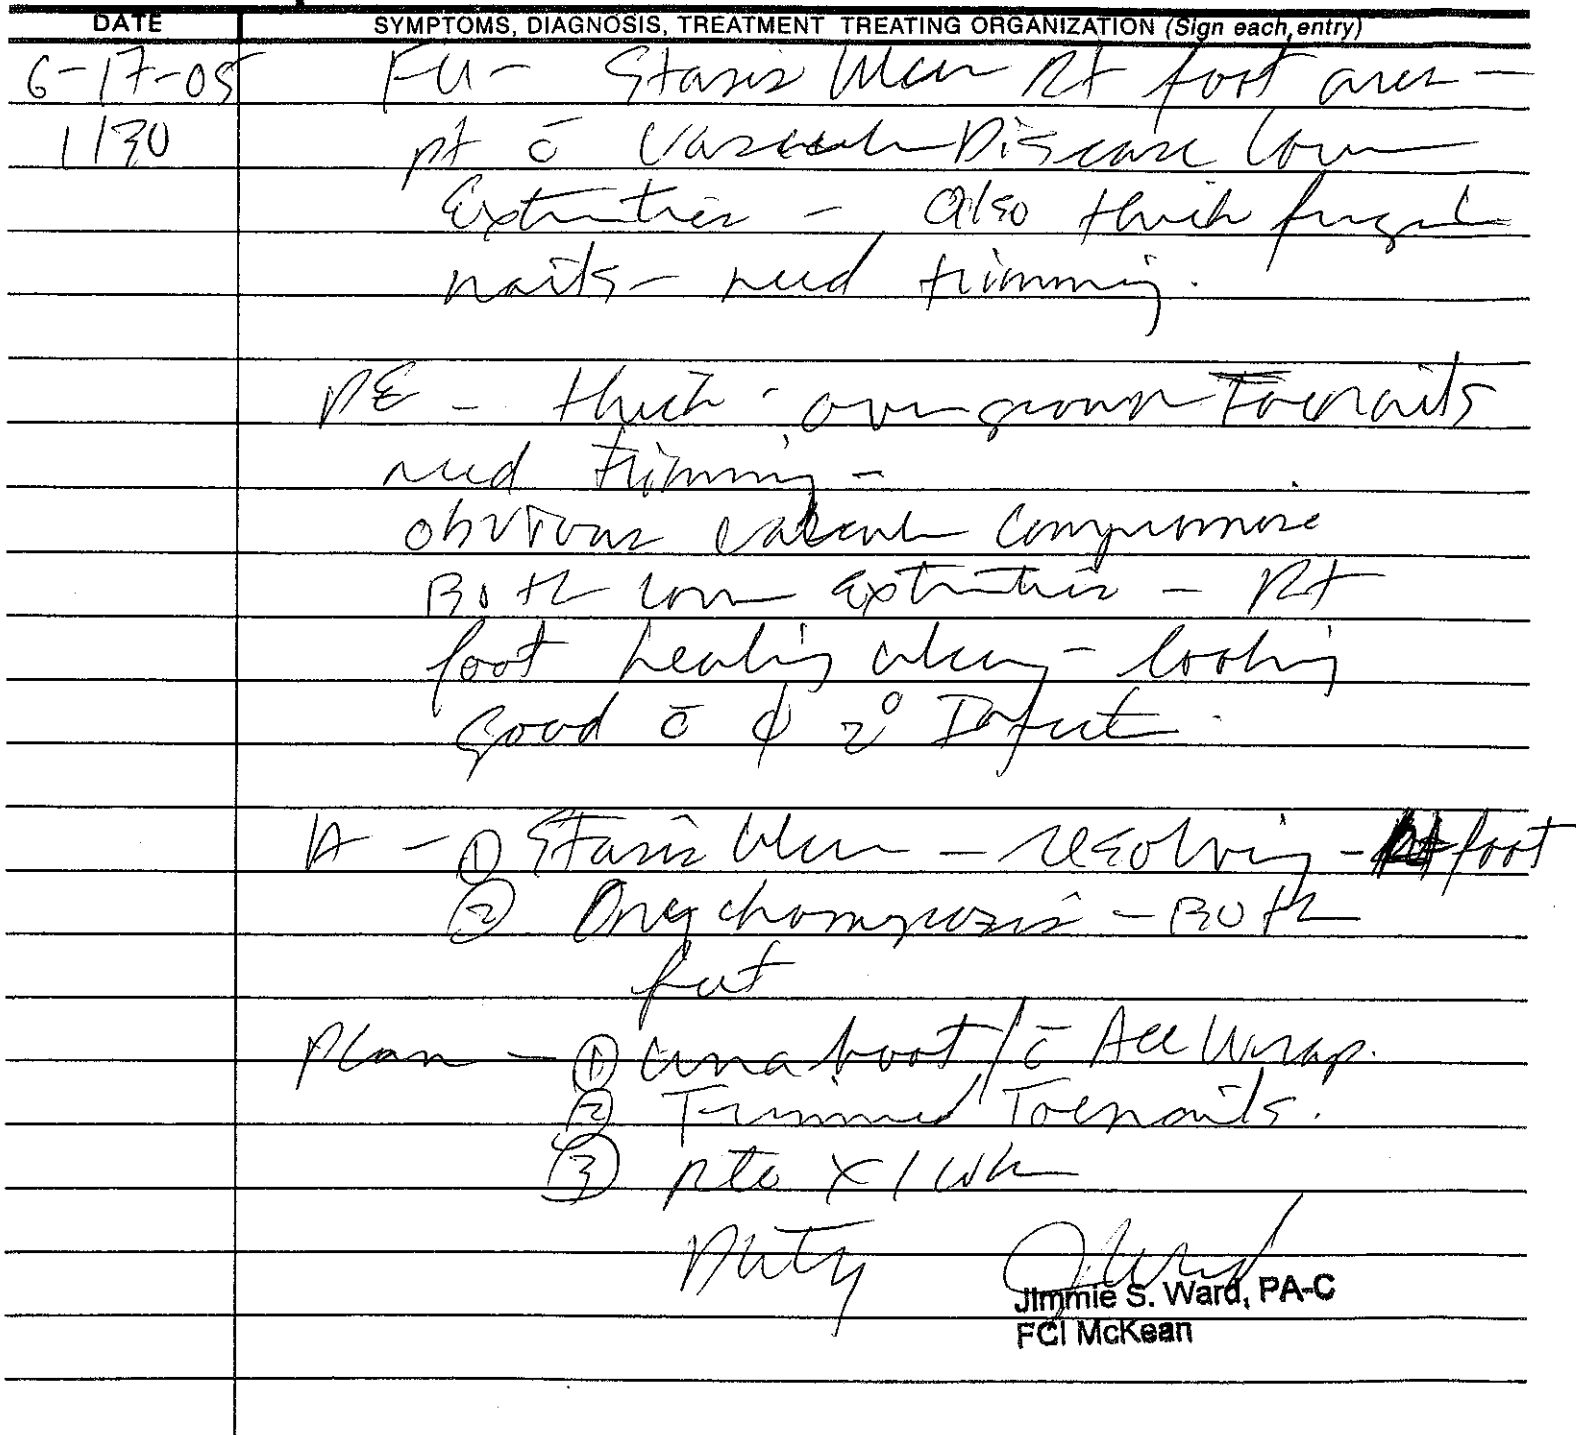 DATE SYMPTOMS, DIAGNOSIS, TREATMENT TREATING ORGANIZATION (Sign each entry)
6-17-05 FU- Stasis Ulcer Rt foot area -
1130 pt c̄ Vascular Disease Lower
Extremities - Also thick fungal
nails - need trimming.
PE - thick - overgrown Toenails
need trimming -
obvious vascular compromise
Both lower extremities - Rt
foot healing ulcer - looking
good c̄ ∅ 2° Infect
A - ① Stasis Ulcer - resolving - Rt foot
② Onychomycosis - Both
feet
Plan - ① una boot / c̄ Ace Wrap.
② Trimmed Toenails.
③ rtc x 1 wk
J Ward
Jimmie S. Ward, PA-C
FCI McKean